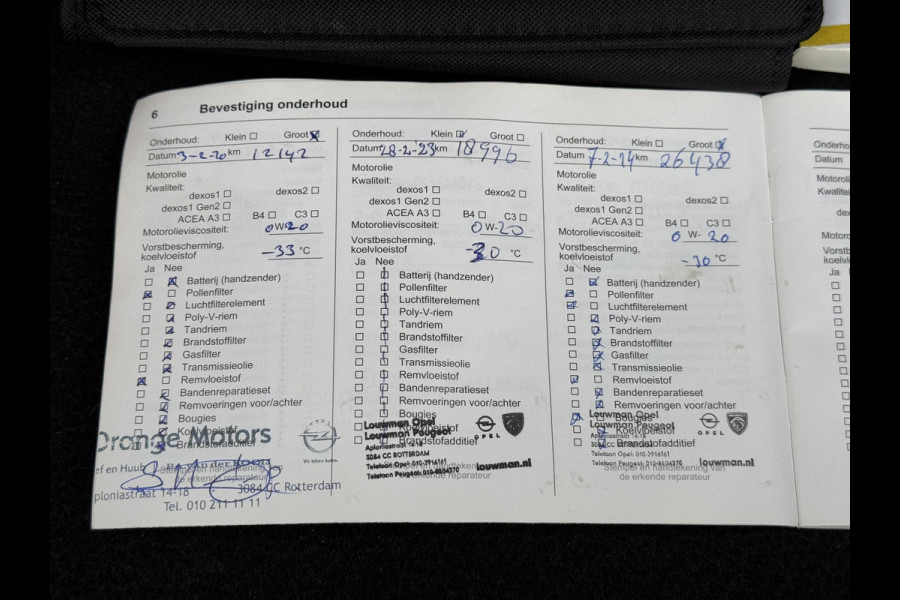 6 Bevestiging onderhoud
Onderhoud: Klein ☐ Groot ☒
Datum 3-2-20 km 12142
Motorolie
Kwaliteit:
dexos1 ☐ dexos2 ☐
dexos1 Gen2 ☐
ACEA A3 ☐ B4 ☐ C3 ☐
Motorolieviscositeit: 0 W-20
Vorstbescherming,
koelvloeistof -33 °C
Ja Nee
Batterij (handzender)
Pollenfilter
Luchtfilterelement
Poly-V-riem
Tandriem
Brandstoffilter
Gasfilter
Transmissieolie
Remvloeistof
Bandenreparatieset
Remvoeringen voor/achter
Bougies
Koelvloeistof
Brandstofadditief
Orange Motors
3084 CC Rotterdam
ploniastraat 14-18
Tel. 010 211 11 11
Onderhoud: Klein ☒ Groot ☐
Datum 28-2-'23 km 18996
Motorolie
Kwaliteit:
dexos1 ☐ dexos2 ☐
dexos1 Gen2 ☐
ACEA A3 ☐ B4 ☐ C3 ☐
Motorolieviscositeit: 0 W-20
Vorstbescherming,
koelvloeistof -30 °C
Ja Nee
Batterij (handzender)
Pollenfilter
Luchtfilterelement
Poly-V-riem
Tandriem
Brandstoffilter
Gasfilter
Transmissieolie
Remvloeistof
Bandenreparatieset
Remvoeringen voor/achter
Bougies
Koelvloeistof
Brandstofadditief
Louwman Opel
Louwman Peugeot
OPEL
Aploniastraat 14-18
3084 CC ROTTERDAM
Telefoon Opel: 010-2916161
Telefoon Peugeot: 010-8504370
louwman.nl
de erkende reparateur
Onderhoud: Klein ☐ Groot ☒
Datum 7-2-24 km 26438
Motorolie
Kwaliteit:
dexos1 ☐ dexos2 ☐
dexos1 Gen2 ☐
ACEA A3 ☐ B4 ☐ C3 ☐
Motorolieviscositeit: 0 W-20
Vorstbescherming,
koelvloeistof -30 °C
Ja Nee
Batterij (handzender)
Pollenfilter
Luchtfilterelement
Poly-V-riem
Tandriem
Brandstoffilter
Gasfilter
Transmissieolie
Remvloeistof
Bandenreparatieset
Remvoeringen voor/achter
Bougies
Koelvloeistof
Brandstofadditief
Louwman Opel
Louwman Peugeot
OPEL
Aploniastraat 14-18
ROTTERDAM
Telefoon Opel: 010-2916161
louwman.nl
Stempel en handtekening van
de erkende reparateur
Onderh
Datum
Motorol
Kwalite
Ja